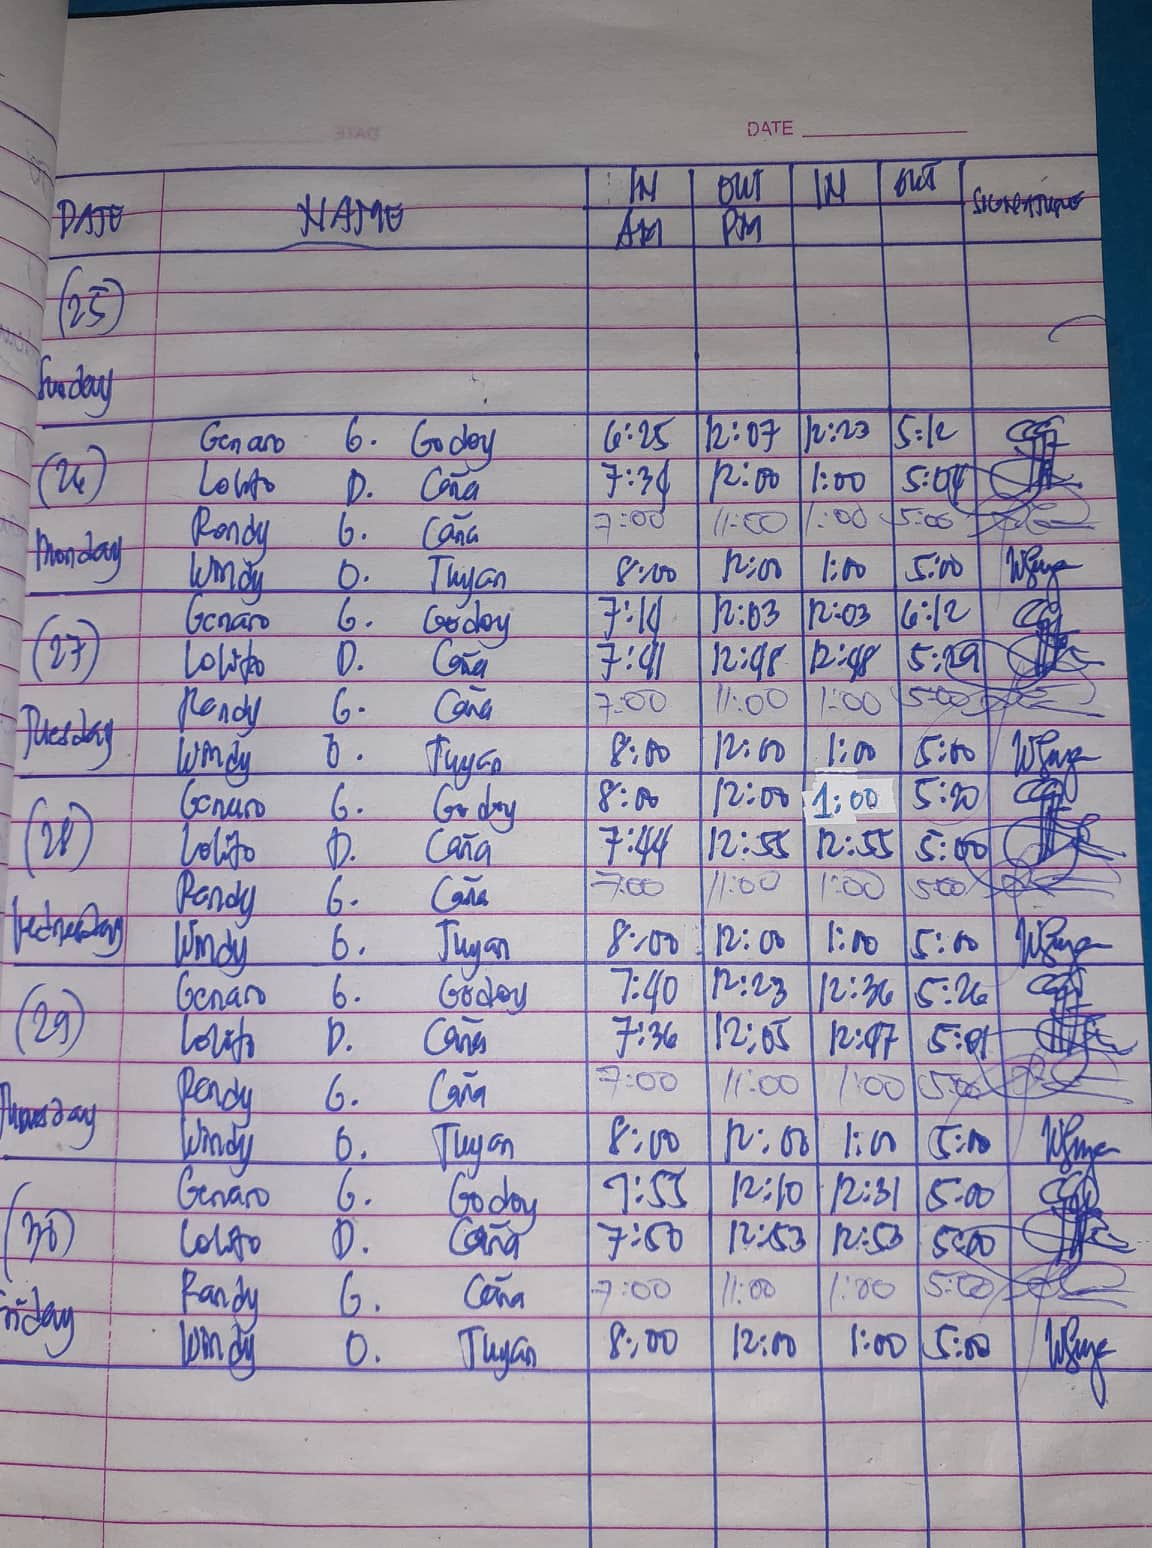 DATE
DATE NAME IN OUT IN OUT SIGNATURE
AM PM
(25)
Sunday
Genaro G. Godoy 6:25 12:07 12:23 5:12
(26) Lolito D. Caña 7:34 12:00 1:00 5:04
Randy G. Caña 7:00 11:00 1:00 5:00
Monday Windy O. Tuyan 8:00 12:00 1:00 5:00
Genaro G. Godoy 7:14 12:03 12:03 6:12
(27) Lolito D. Caña 7:41 12:48 12:48 5:29
Randy G. Caña 7:00 11:00 1:00 5:00
Tuesday Windy O. Tuyan 8:00 12:00 1:00 5:00
Genaro G. Godoy 8:00 12:00 1:00 5:20
(28) Lolito D. Caña 7:44 12:55 12:55 5:00
Randy G. Caña 7:00 11:00 1:00 5:00
Wednesday Windy O. Tuyan 8:00 12:00 1:00 5:00
Genaro G. Godoy 7:40 12:23 12:36 5:26
(29) Lolito D. Caña 7:36 12:05 12:47 5:01
Randy G. Caña 7:00 11:00 1:00 5:00
Thursday Windy O. Tuyan 8:00 12:00 1:00 5:00
Genaro G. Godoy 7:55 12:10 12:31 5:00
(30) Lolito D. Caña 7:50 12:53 12:53 5:00
Randy G. Caña 7:00 11:00 1:00 5:00
Friday Windy O. Tuyan 8:00 12:00 1:00 5:00